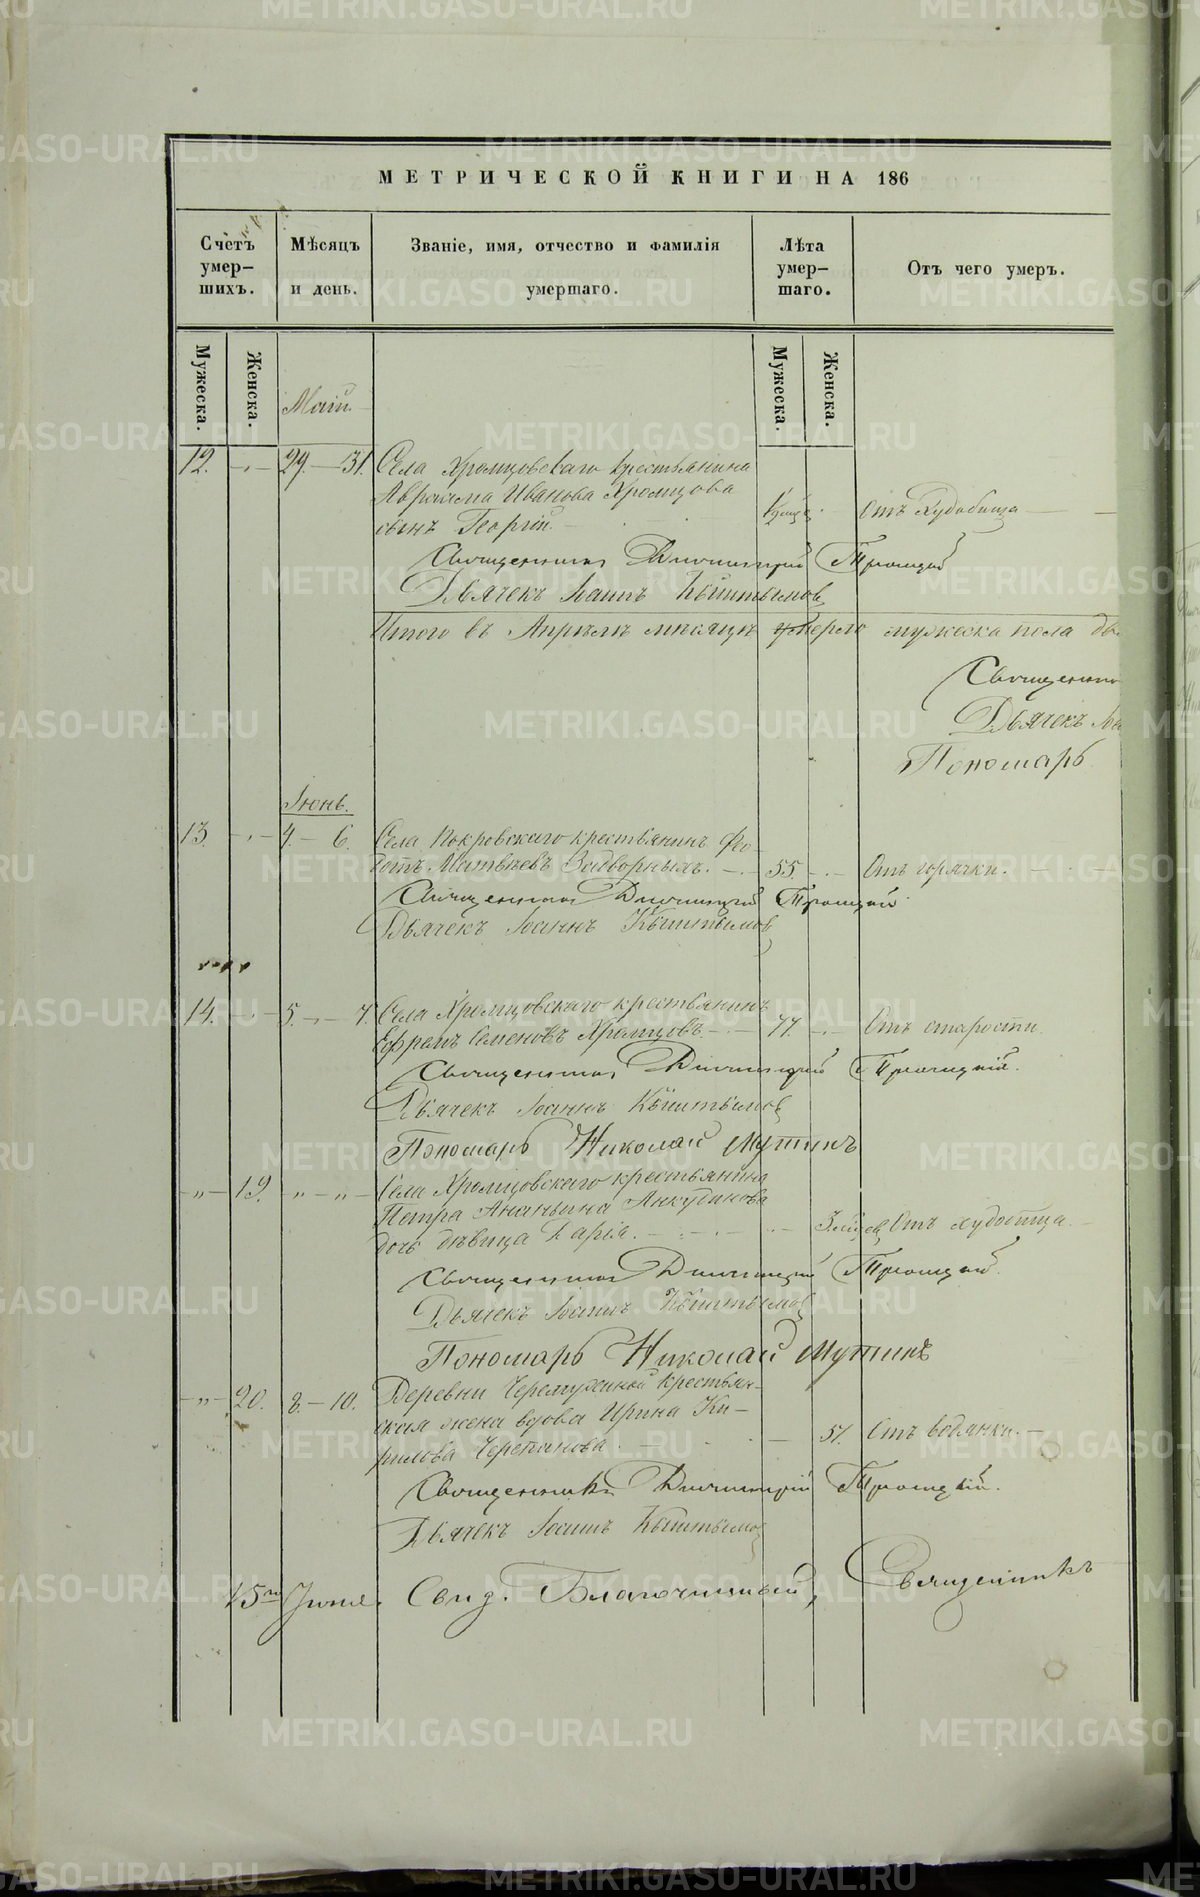 МЕТРИЧЕСКОЙ КНИГИ НА 186
Счетъ умершихъ.
Мѣсяцъ и день.
Званіе, имя, отчество и фамилія умершаго.
Лѣта умершаго.
Отъ чего умеръ.
Мужеска.
Женска.
Мужеска.
Женска.
Май.
12. 29. — 31. Села Хромцовскаго крестьянина
Авраама Иванова Хромцова
сынъ Георгій. Отъ Худобища
Священникъ Димитрій Троицкій
Дьячекъ Іоаннъ Кыштымов
Итого въ Апрѣлѣ мѣсяцѣ умерло мужеска пола
Священни
Дьячекъ
Пономарь
Іюнь.
13. 4. — 6. Села Покровскаго крестьянинъ Фео-
дотъ Матвѣевъ Задворныхъ. 55. Отъ горячки.
Священникъ Димитрій Троицкій
Дьячекъ Іоаннъ Кыштымов
14. 5. — 7. Села Хромцовскаго крестьянинъ
Ефремъ Семеновъ Хромцовъ. 77. Отъ старости.
Священникъ Димитрій Троицкій.
Дьячекъ Іоаннъ Кыштымов
Пономарь Николай Мутинъ
— „ — 19. „ — „ — Села Хромцовскаго крестьянина
Петра Ананьина Анкудинова
дочь дѣвица Дарія. 3. мѣсяц. Отъ худобища.
Священникъ Димитрій Троицкій.
Дьячекъ Іоаннъ Кыштымов
Пономарь Николай Мутинъ
— „ — 20. 8. — 10. Деревни Черемухиной крестьян-
ская жена вдова Ирина Ки-
рилова Черепанова. 51. Отъ водянки.
Священникъ Димитрій Троицкій.
Дьячекъ Іоаннъ Кыштымов
15го Іюня. Свид. Благочинный, Священникъ
METRIKI.GASO-URAL.RU